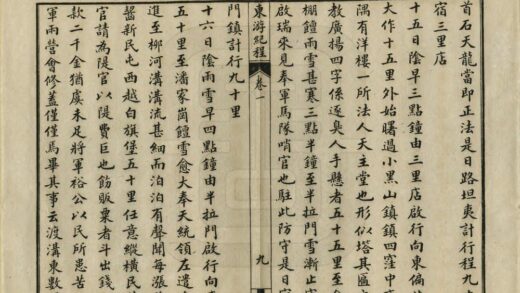 首石天龍當即正法是日路坦夷計行程九
宿三里店
十五日陰早三點鐘由三里店啟行向東偏
大作十五里外始曙過小黑山鎮鎮四窪中
隅有洋樓一所法人天主堂也形似塔其匾
教廣揚四字係逐臭人手懸者五十五里至
棚饘雨雪甚寒三點半鐘至半拉門雪漸止
啟瑞來見奉軍馬隊哨官也駐此防守是日
東游紀程
卷一
九
門鎮計行九十里
十六日陰雨雪早四點鐘由半拉門啟行向
五十里至潘家崗饘雪愈大奉天統領左遵
進至柳河溝溝流甚細而泊泊有聲聞每漲
醫新民屯西越白旗堡五十里任意縱橫民
官請為隄官以隄費巨也飭販粟者斗出錢
款二千金猶虞未足將軍裕公以民所患苦
軍兩營會修蓋僅僅焉畢其事云渡溝東數